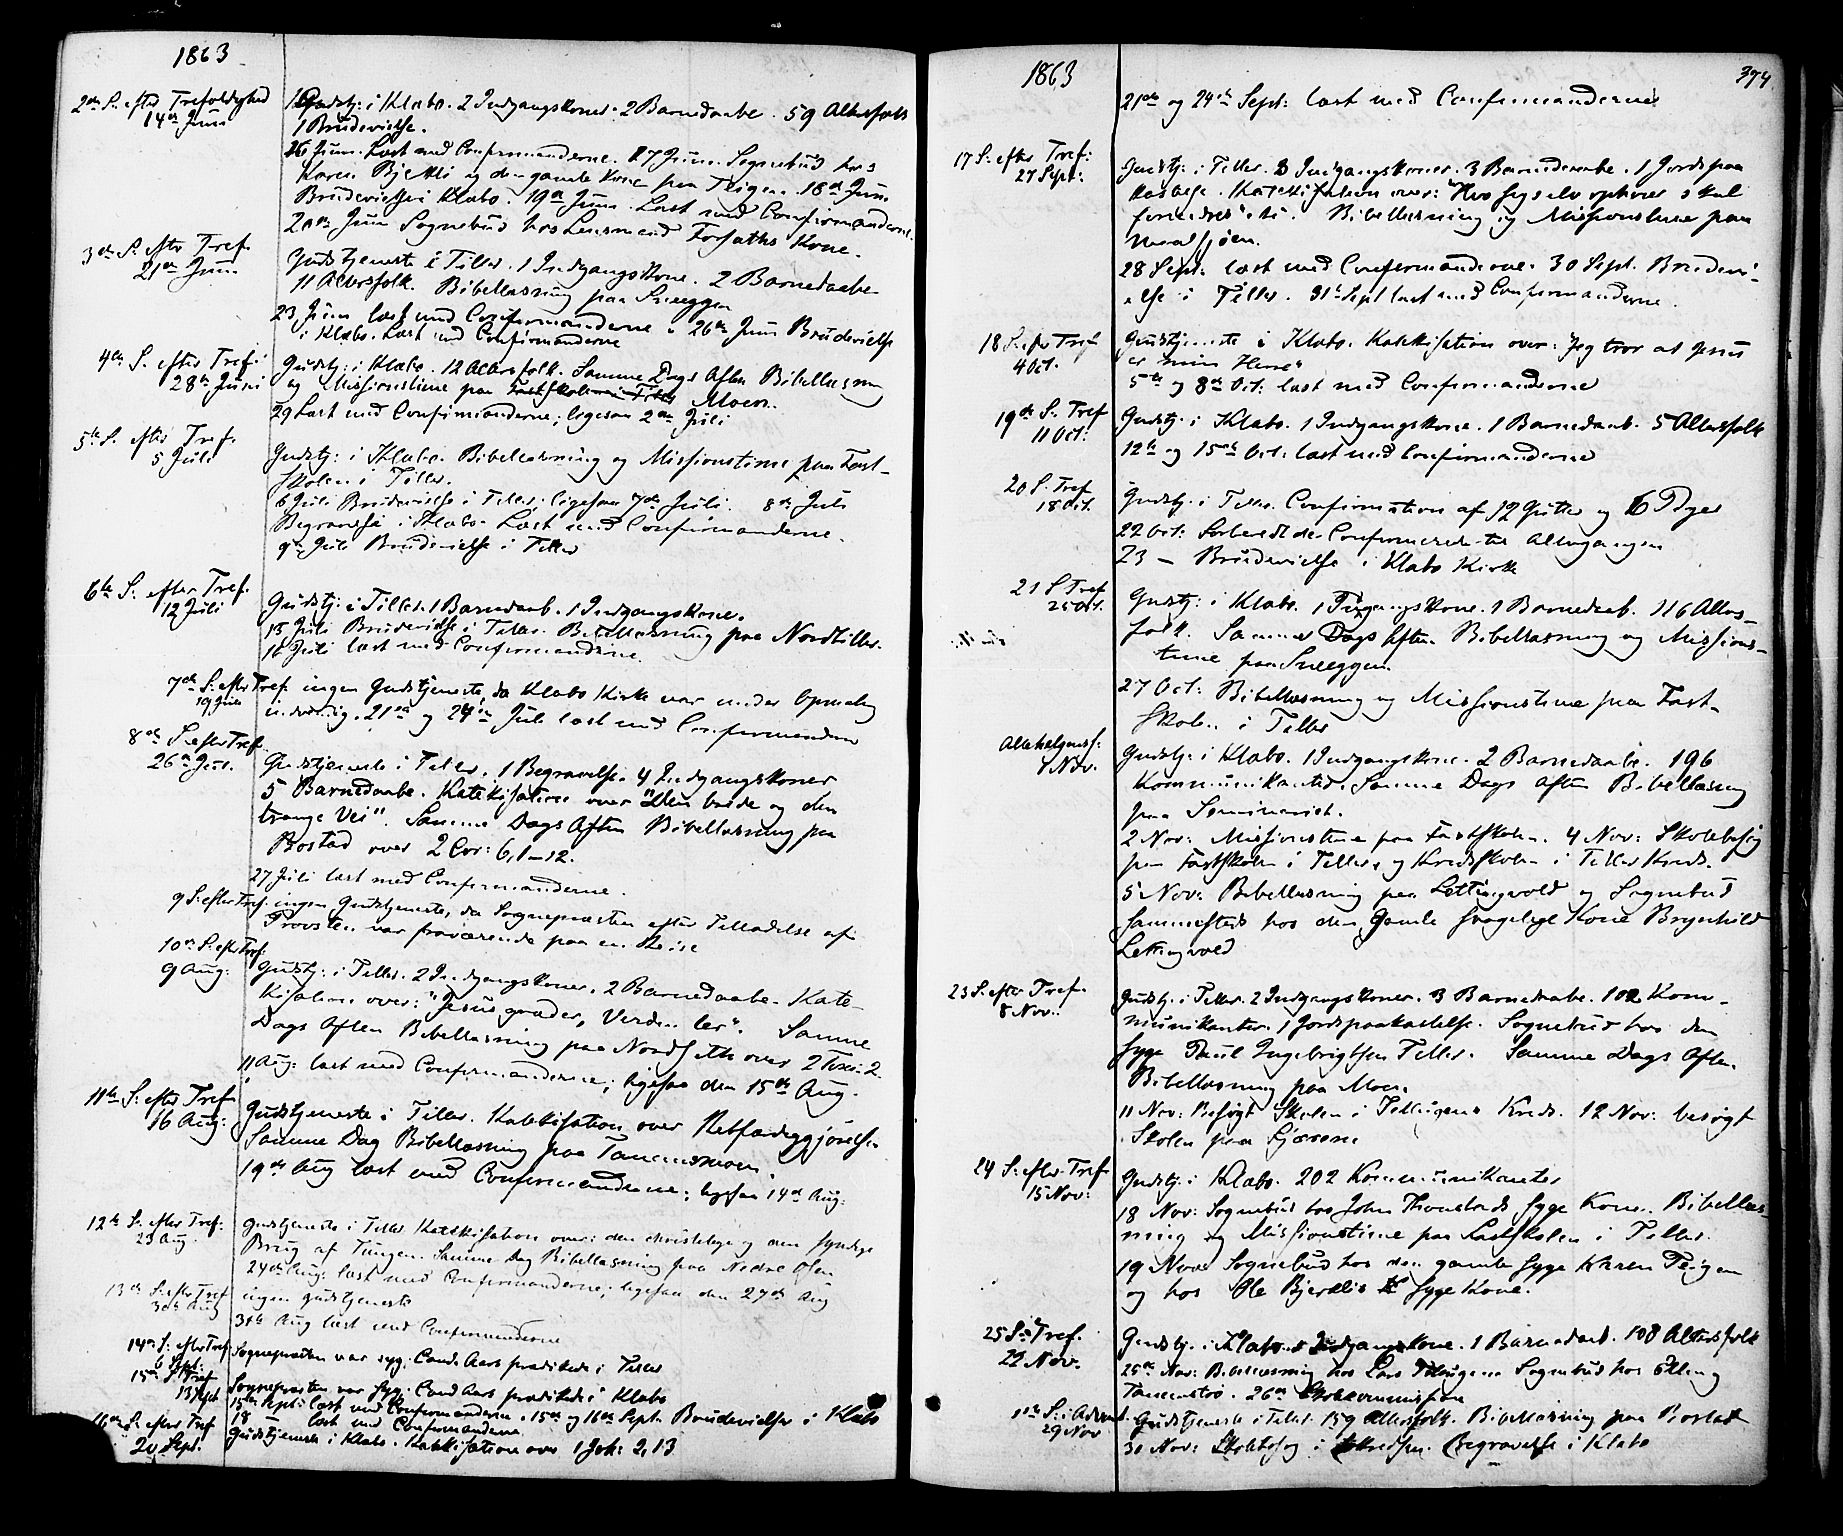 1863
2den S. efter Trefoldighed
14de Juni
Gudstj: i Klæbo. 2 Indgangskoner. 2 Barnedaabe. 59 Altersfolk
1 Brudevielse.
16 Juni. Læst med Confirmanderne. 17 Juni. Sognebud hos
Karen Bjerkli og den gamle Kone paa Teigen. 18de Juni
Brudevielse i Klæbo. 19de Juni. Læst med Confirmanderne.
20de Juni Sognebud hos Lensmand Forsaths Kone.
3die S. efter Tref.
21de Juni
Gudstjeneste i Tiller. 1 Indgangskone. 2 Barnedaabe
11 Altersfolk. Bibellæsning paa Sneeggen
23 Juni læst med Confirmanderne. 26de Juni Brudevielse
i Klæbo. Læst med Confirmanderne
4de S. efter Tref:
28de Juni
Gudstj: i Klæbo. 12 Altersfolk. Samme Dags Aften Bibellæsning
og Missionstime paa Fastskolen i Tiller Moen.
29 Læst med Confirmanderne; ligesaa 2den Juli
5te S. efter Tref.
5 Juli
Gudstj: i Klæbo. Bibellæsning og Missionstime paa Fast-
skolen i Tiller.
6 Juli Brudevielse i Tiller; ligesaa 7de Juli. 8de Juli
Begravelse i Klæbo. Læst med Confirmanderne.
9de Juli Brudevielse i Tiller
6te S. efter Tref.
12 Juli
Gudstj: i Tiller. 1 Barnedaab. 1 Indgangskone.
15 Juli Brudevielse i Tiller. Bibellæsning paa Nordtiller.
16 Juli læst med Confirmanderne.
7de S. efter Tref.
19 Juli
ingen Gudstjeneste, da Klæbo Kirke var under Opmaling
indvendig. 21de og 24de Juli læst med Confirmanderne
8de S. efter Tref.
26de Juli.
Gudstjeneste i Tiller. 1 Begravelse. 4 Indgangskoner
5 Barnedaabe. Katekisation over "Den brede og den
trange Vei". Samme Dags Aften Bibellæsning paa
Rostad over 2 Cor: 6,1-12.
27 Juli læst med Confirmanderne.
9 S. efter Tref.
ingen Gudstjeneste, da Sognepræsten efter Tilladelse af
Provsten var fraværende paa en Reise
10de S. efter Tref.
9 Aug:
Gudstj: i Tiller. 2 Indgangskoner. 2 Barnedaabe. Kate-
kisation over: "Jesus græder, Verden ler". Samme
Dags Aften Bibellæsning paa Nordseth over 2 Tim: 2.
11 Aug: læst med Confirmanderne; ligesaa den 15de Aug.
11te S. efter Tref.
16 Aug:
Gudstjeneste i Tiller. Katekisation over Retfærdiggjørelse
Samme Dag Bibellæsning paa Tanemsmoen
19de Aug læst med Confirmanderne; ligesaa 14de Aug:
12te S. efter Tref:
23 Aug.
Gudstjeneste i Tiller Katekisation over: den christelige og den syndige
Brug af Tungen. Samme Dag Bibellæsning paa Nedre Osen
24de Aug: læst med Confirmanderne; ligesaa den 27de Aug
13de S. efter Tref
30de Aug
ingen gudstjeneste
31te Aug læst med Confirmanderne
14de S. efter Tref
6 Sept:
Sognepræsten var syg. Cand. Aars prædikede i Tiller
15de S. Tref
13 Sept
Sognepræsten var syg. Cand Aars prædikede i Klæbo
15de Sept: læst med Confirmanderne. 15de og 16de Sept. Brudevielse i Klæbo
18 læst med Confirmanderne
16de S. efter Tref
20 Sept.
Gudstjeneste i Klæbo. Katekisation over 1 Joh: 2,13
1863
374
21de og 24de Sept: læst med Confirmanderne
17 S. efter Tref:
27 Sept:
Gudstj: i Tiller. 3 Indgangskoner. 3 Barnedaabe. 1 Jordspaa
kastelse. Katekisation over: "Hvo sig selv ophøier skal
fornedres" etc. Bibellæsning og Missionstime paa
28 Sept: læst med Confirmanderne. 30 Sept. Brudevi-
else i Tiller. 31te Sept læst med Confirmanderne.
18 S. efter Tref
4 Oct.
Gudstjeneste i Klæbo. Katekisation over: Jeg tror at Jesus
er min Herre"
5te og 8de Oct: læst med Confirmanderne
19de S. Tref
11 Oct:
Gudstj: i Klæbo. 1 Indgangskone. 1 Barnedaab. 5 Altersfolk
12te og 15de Oct: læst med Confirmanderne
20 S. Tref
18 Oct.
Gudstj: i Tiller. Confirmation af 12 Gutter og 16 Piger
22 Oct: forberedt de Confirmerede til Altergangen
23 - Brudevielse i Klæbo Kirke
21 S Tref
25 Oct.
Gudstj: i Klæbo. 1 Indgangskone. 1 Barnedaab. 116 Alters-
folk. Samme Dags Aften Bibellæsning og Missions-
time paa Sneeggen.
27 Oct: Bibellæsning og Missionstime paa Fast-
skolen i Tiller
Allehelgensf:
1 Nov.
Gudstj: i Klæbo. 1 Indgangskone. 2 Barnedaabe. 196
Kommunikanter. Samme Dags Aften Bibellæsning
paa Seminariet.
2 Nov: Missionstime paa Fastskolen. 4 Nov: Skolebesøg
paa Fastskolen i Tiller og Kredsskolen i Tiller Kreds.
5 Nov: Bibellæsning paa Lettingvold og Sognebud
sammesteds hos den gamle svagelige Kone Brynhild
Lettingvold
23 S. efter Tref.
8 Nov:
Gudstj. i Tiller. 2 Indgangskoner. 3 Barnedaabe. 102 Kom-
munikanter. 1 Jordspaakastelse. Sognebud hos den
syge Paul Ingebrigtsen Tiller. Samme Dags Aften
Bibellæsning paa Moen.
11 Nov: Besøgt Skolen i Teiligens Kreds. 12 Nov: besøgt
Skolen paa Gjærum
24 S: efter Tref
15 Nov:
Gudstj: i Klæbo. 202 Kommunikanter
18 Nov: Sognebud hos John Thonstads syge Kone. Bibellæs-
ning og Missionstime paa Fastskolen i Tiller.
19 Nov: Sognebud hos den gamle syge Karen Teigen
og hos Ole Bjerklis syge Kone.
25 S: Tref.
22 Nov.
Gudstj. i Klæbo. 1 Indgangskone. 1 Barnedaab. 108 Altersfolk
25de Nov: Bibellæsning hos Lars Sognebud hos Elling
26de Skolekommission
1ste S. i Advent
29 Nov
Gudstjeneste i Tiller. 159 Altersfolk. Bibellæsning paa Rostad
30 Nov: Skolebesøg i Begravelse i Klæbo